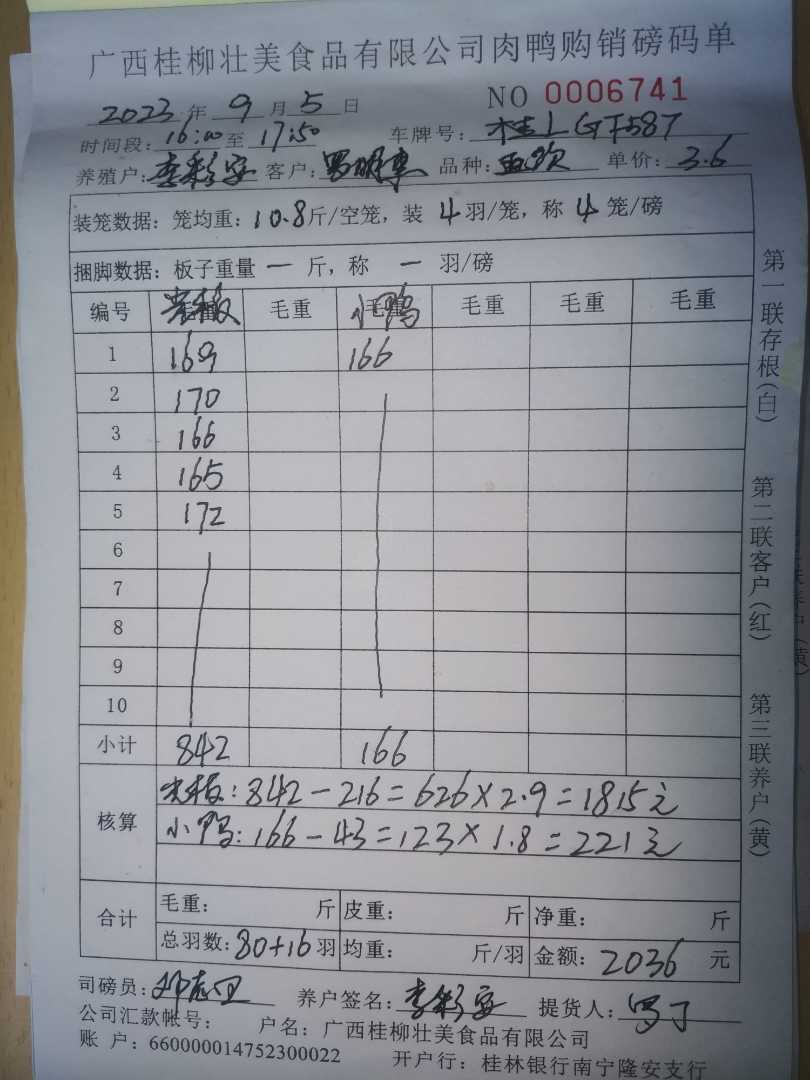 广西桂柳壮美食品有限公司肉鸭购销磅码单
NO 0006741
2023年9月5日
时间段:16:00至17:50 车牌号:桂LGF587
养殖户:李彩安 客户: 品种: 单价:3.6
装笼数据:笼均重:10.8斤/空笼,装4羽/笼,称4笼/磅
捆脚数据:板子重量 一 斤,称 一 羽/磅
编号 光板 毛重 小鸭 毛重 毛重 毛重
1 169 166
2 170
3 166
4 165
5 172
6
7
8
9
10
小计 842 166
核算
光板:842-216=626×2.9=1815元
小鸭:166-43=123×1.8=221元
合计
毛重: 斤 皮重: 斤 净重: 斤
总羽数:80+16羽 均重: 斤/羽 金额:2036元
司磅员: 养户签名:李彩安 提货人:
公司汇款帐号: 户名:广西桂柳壮美食品有限公司
账 户:660000014752300022 开户行:桂林银行南宁隆安支行
第一联存根(白)
第二联客户(红)
第三联养户(黄)